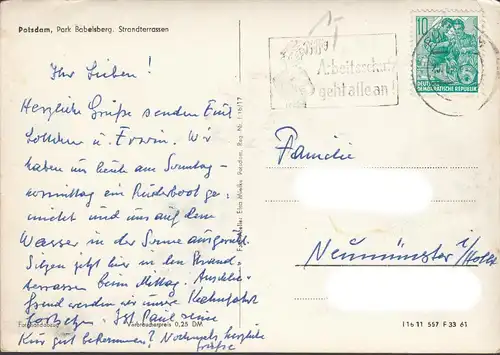 Potsdam, Park Babelsberg. Strandterrassen
Ihr Lieben!
Herzliche Grüße senden Euch
Lottchen u. Erwin. Wir
haben uns heute am Sonntag-
vormittag ein Ruderboot ge-
mietet und uns auf dem
Wasser in der Sonne ausgeruht.
Sitzen jetzt hier in den Strand-
terrassen beim Mittag. Anschlie-
ßend werden wir unsere Kahnfahrt
fortsetzen. Ist Paul seine
Kur gut bekommen? Nochmals herzliche
Grüße
Verbraucherpreis 0,25 DM
Potsdam, Reg.-Nr. I/16/17
Arbeitsschutz
geht alle an!
10
DEUTSCHE
DEMOKRATISCHE REPUBLIK
Familie
Neumünster i/Holst
I 16 11 557 F 33 61